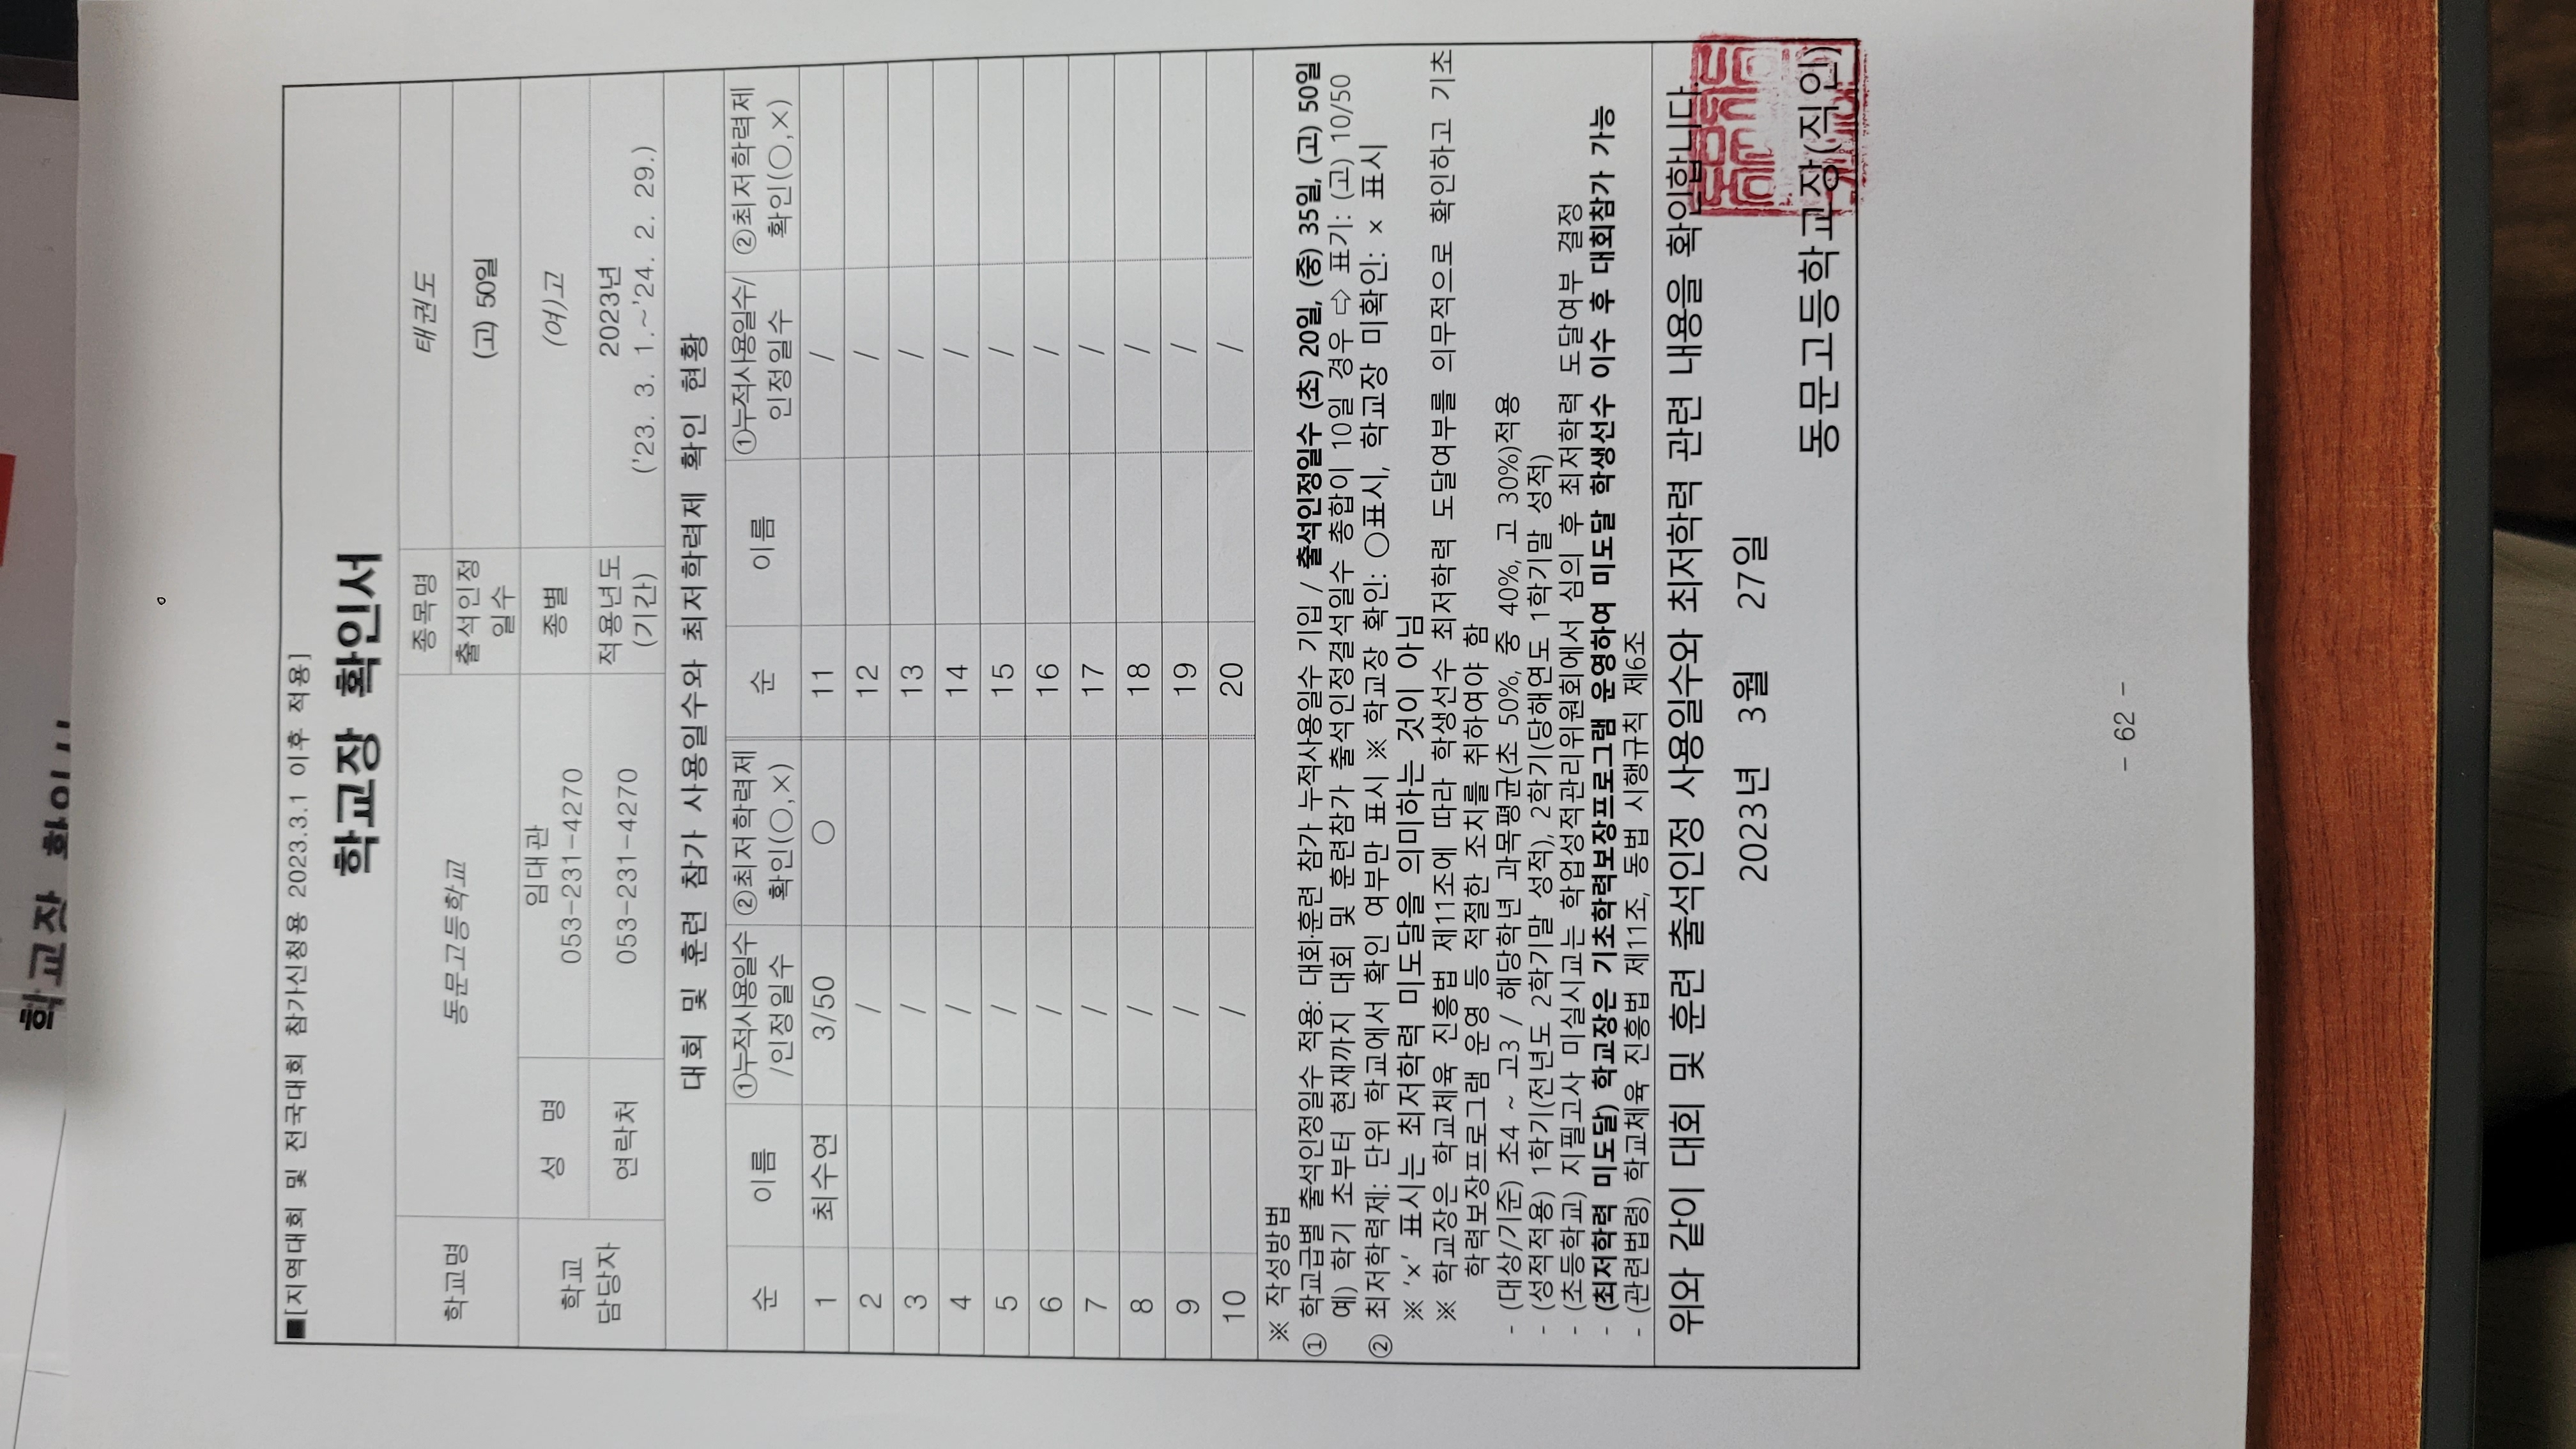 ■[지역대회 및 전국대회 참가신청용 2023.3.1 이후 적용]
학교장 확인서
학교명 동문고등학교 종목명 태권도
출석인정 일수 (고) 50일
학교 담당자 성 명 임대관 053-231-4270 종별 (여)고
연락처 053-231-4270 적용년도 (기간) 2023년 ('23. 3. 1.~'24. 2. 29.)
대회 및 훈련 참가 사용일수와 최저학력제 확인 현황
순 이름 ①누적사용일수/인정일수 ②최저학력제 확인(○,×) 순 이름 ①누적사용일수/인정일수 ②최저학력제 확인(○,×)
1 최수연 3/50 ○ 11 /
2 / 12 /
3 / 13 /
4 / 14 /
5 / 15 /
6 / 16 /
7 / 17 /
8 / 18 /
9 / 19 /
10 / 20 /
※ 작성방법
① 학교급별 출석인정일수 적용: 대회·훈련 참가 누적사용일수 기입 / 출석인정일수 (초) 20일, (중) 35일, (고) 50일
예) 학기 초부터 현재까지 대회 및 훈련참가 출석인정결석일수 총합이 10일 경우 ⇨ 표기: (고) 10/50
② 최저학력제: 단위 학교에서 확인 여부만 표시 ※ 학교장 확인: ○표시, 학교장 미확인: × 표시
※ '×' 표시는 최저학력 미도달을 의미하는 것이 아님
※ 학교장은 학교체육 진흥법 제11조에 따라 학생선수 최저학력 도달여부를 의무적으로 확인하고 기초
학력보장프로그램 운영 등 적절한 조치를 취하여야 함
- (대상/기준) 초4 ~ 고3 / 해당학년 과목평균(초 50%, 중 40%, 고 30%)적용
- (성적적용) 1학기(전년도 2학기말 성적), 2학기(당해연도 1학기말 성적)
- (초등학교) 지필고사 미실시교는 학업성적관리위원회에서 심의 후 최저학력 도달여부 결정
- (최저학력 미도달) 학교장은 기초학력보장프로그램 운영하여 미도달 학생선수 이수 후 대회참가 가능
- (관련법령) 학교체육 진흥법 제11조, 동법 시행규칙 제6조
위와 같이 대회 및 훈련 출석인정 사용일수와 최저학력 관련 내용을 확인합니다.
2023년 3월 27일
동문고등학교장(직인)
- 62 -